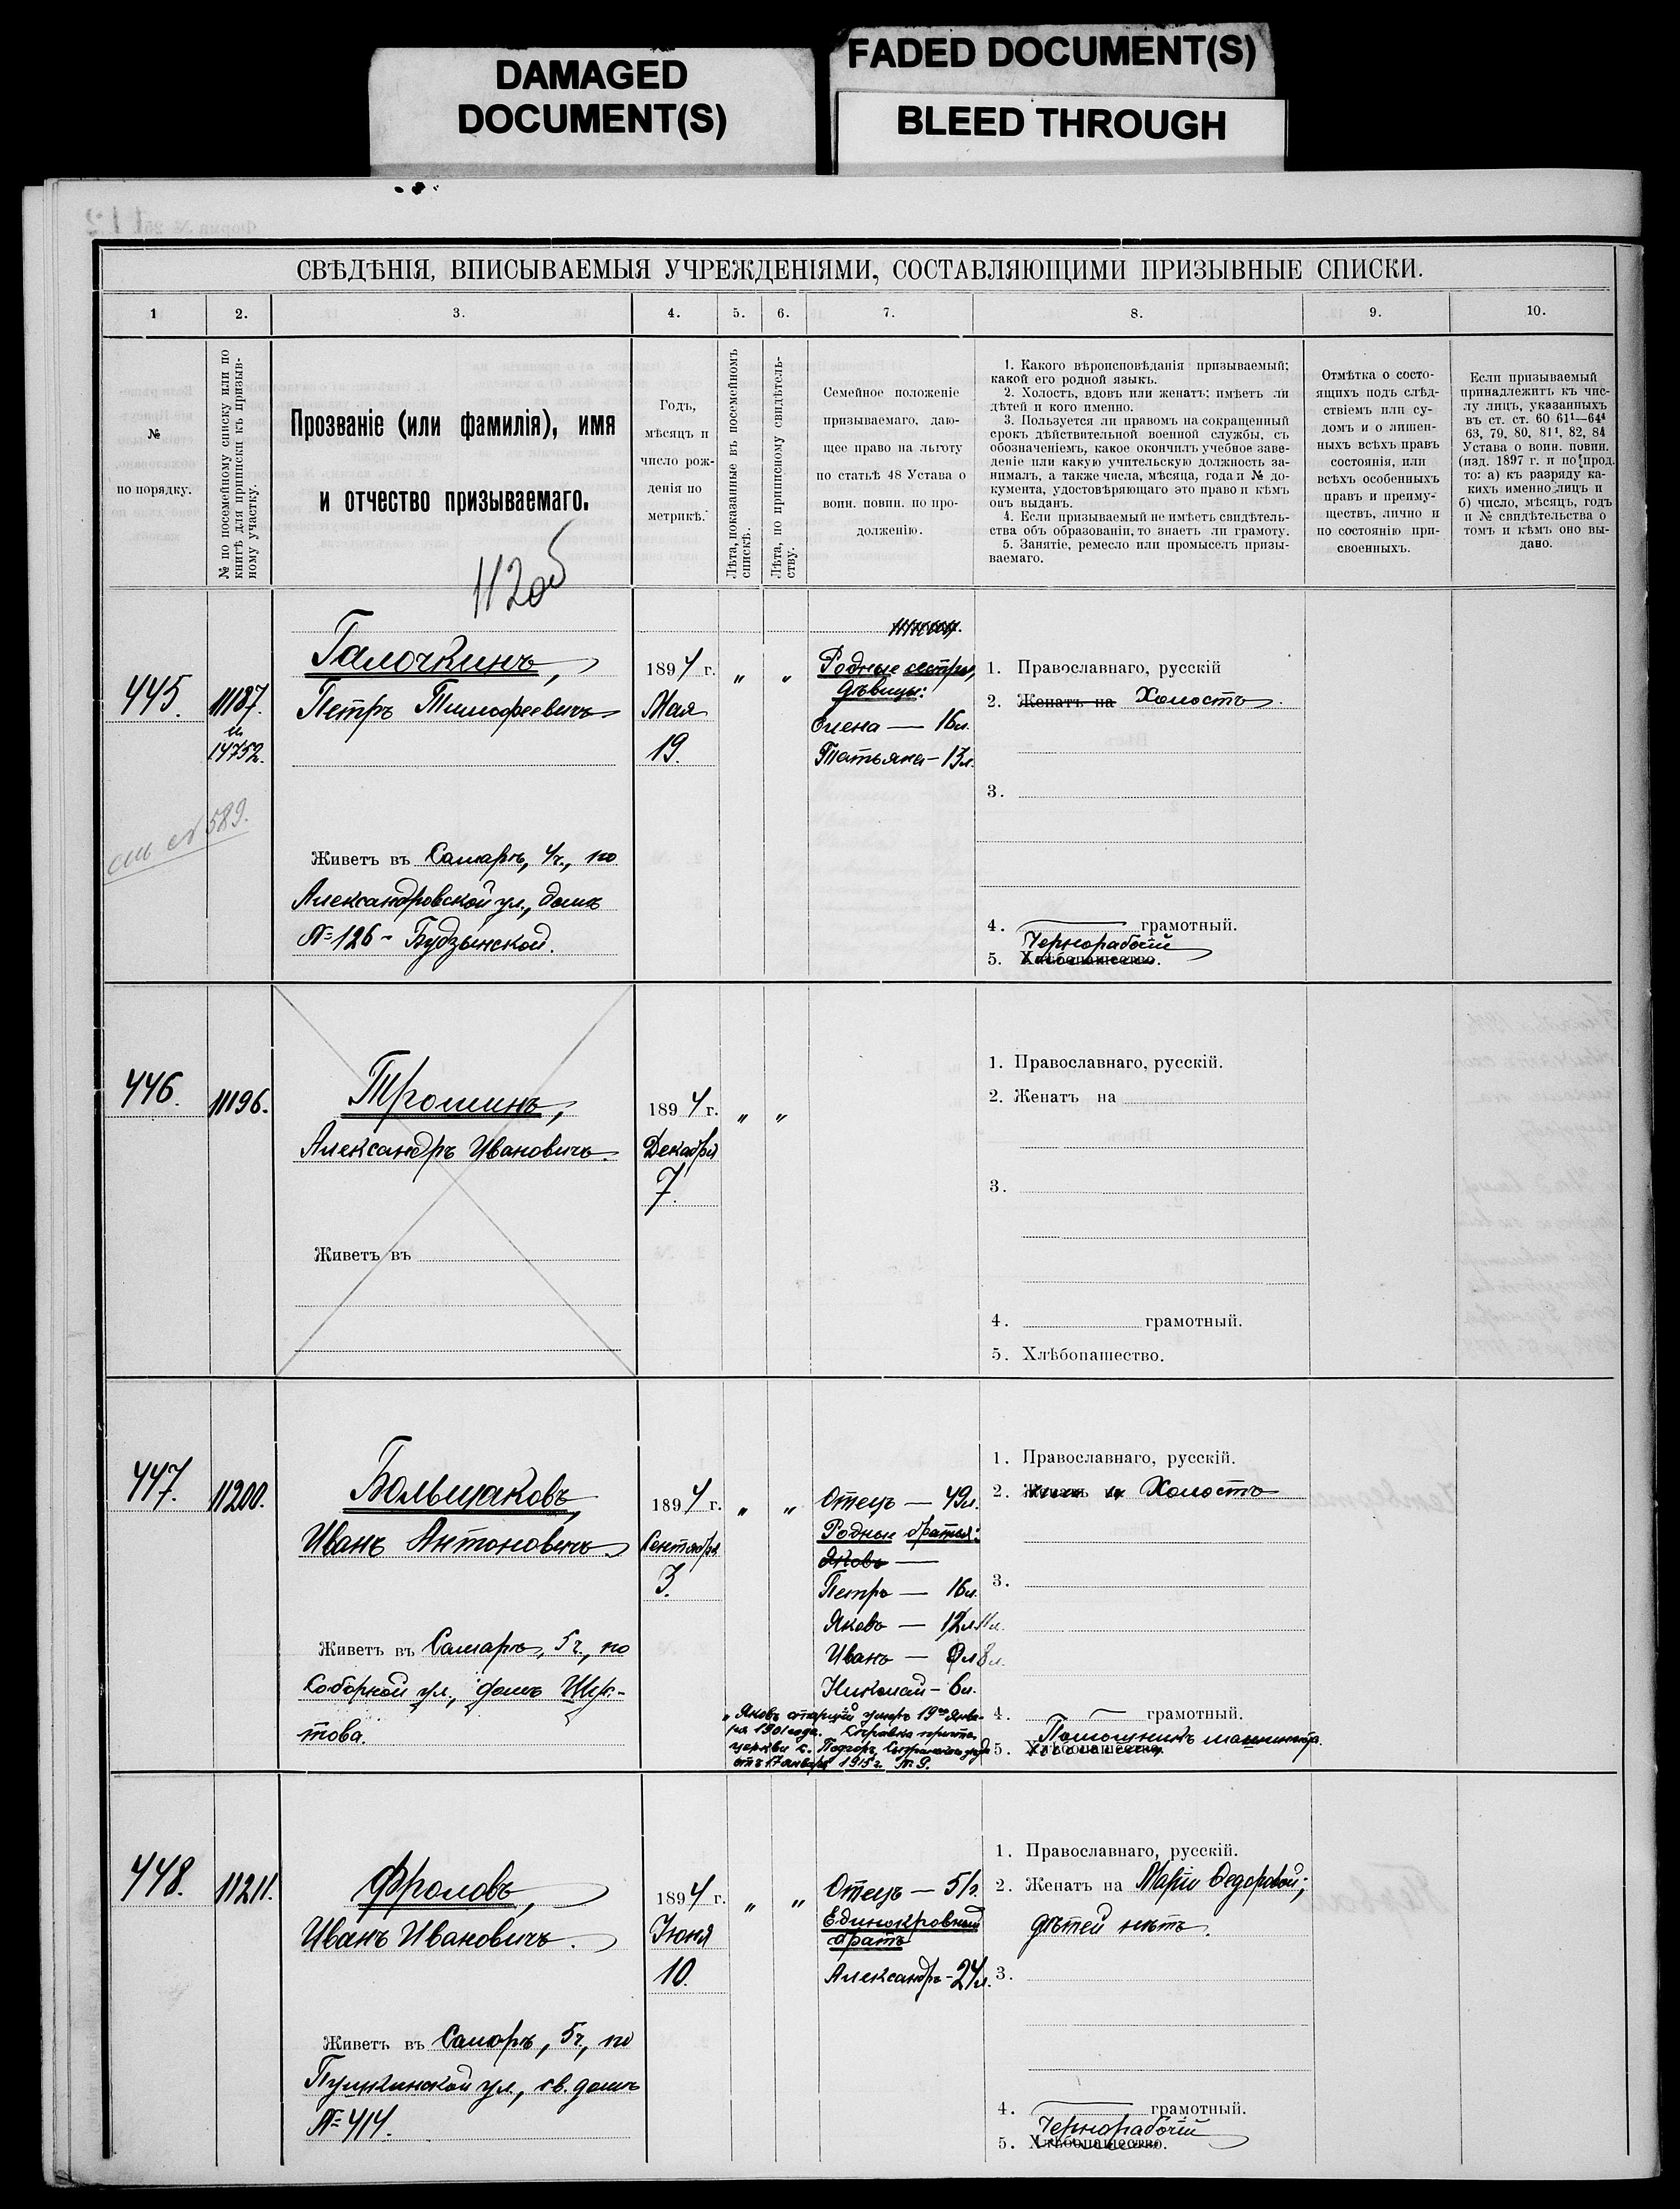 DAMAGED
DOCUMENT(S)
FADED DOCUMENT(S)
BLEED THROUGH
СВѢДѢНІЯ, ВПИСЫВАЕМЫЯ УЧРЕЖДЕНІЯМИ, СОСТАВЛЯЮЩИМИ ПРИЗЫВНЫЕ СПИСКИ.
1 2. 3. 4. 5. 6. 7. 8. 9. 10.
№
по порядку.
№ по посемейному списку или по
книгѣ для приписки къ призыв-
ному участку.
Прозваніе (или фамилія), имя
и отчество призываемаго.
112об
Годъ,
мѣсяцъ и
число рож-
денія по
метрикѣ.
Лѣта, показанные въ посемейномъ
спискѣ.
Лѣта, по приписному свидѣтель-
ству.
Семейное положеніе
призываемаго, даю-
щее право на льготу
по статьѣ 48 Устава о
воин. повин. по про-
долженію.
1. Какого вѣроисповѣданія призываемый;
какой его родной языкъ.
2. Холостъ, вдовъ или женатъ; имѣетъ ли
дѣтей и кого именно.
3. Пользуется ли правомъ на сокращенный
срокъ дѣйствительной военной службы, съ
обозначеніемъ, какое окончилъ учебное заве-
деніе или какую учительскую должность за-
нималъ, а также числа, мѣсяца, года и № до-
кумента, удостовѣряющаго это право и кѣмъ
онъ выданъ.
4. Если призываемый не имѣетъ свидѣтель-
ства объ образованіи, то знаетъ ли грамоту.
5. Занятіе, ремесло или промыселъ призы-
ваемаго.
Отмѣтка о состо-
ящихъ подъ слѣд-
ствіемъ или су-
домъ и о лишен-
ныхъ всѣхъ правъ
состоянія, или
всѣхъ особенныхъ
правъ и преиму-
ществъ, лично и
по состоянію при-
своенныхъ.
Если призываемый
принадлежитъ къ чис-
лу лицъ, указанныхъ
въ ст. ст. 60 61¹—64⁴
63, 79, 80, 81¹, 82, 84
Устава о воин. повин.
(изд. 1897 г. и по прод.
то: а) къ разряду ка-
кихъ именно лицъ и
б) число, мѣсяцъ, годъ
и № свидѣтельства о
томъ и кѣмъ оно вы-
дано.
445.
11187.
и
14752.
см. № 589.
Галочкинъ,
Петръ Тимофеевичъ
Живетъ въ Самарѣ, 4ч., по
Александровской ул., домъ
№ 126 - Будзынской.
1894 г.
Мая
19.
" "
Родные сестры,
дѣвицы:
Елена — 16л.
Татьяна — 13л.
1. Православнаго, русскій
2. Женатъ на Холостъ.
3.
4. грамотный.
Чернорабочій
5. Хлѣбопашество.
446.
11196.
Трошинъ,
Александръ Ивановичъ.
Живетъ въ
1894 г.
Декабря
7.
" "
1. Православнаго, русскій.
2. Женатъ на
3.
4. грамотный.
5. Хлѣбопашество.
447.
11200.
Большаковъ,
Иванъ Антоновичъ.
Живетъ въ Самарѣ, 5ч., по
Соборной ул., домъ Шус-
това.
1894 г.
Сентября
3.
" "
Отецъ — 49л.
Родные братья:
Яковъ —
Петръ — 16л.
Яковъ — 12л 11л.
Иванъ — 9л 8л.
Николай — 6л.
„Яковъ старшій умеръ 19го Янва-
ря 1901 года. Справка причта
церкви с. Подгоръ, Сызранскаго уѣзда
отъ 17 января 1915 г. № 9.
1. Православнаго, русскій.
2. Женатъ на Холостъ
3.
4. грамотный.
Помощникъ машиниста.
5. Хлѣбопашество.
448.
11211.
Фроловъ,
Иванъ Ивановичъ.
Живетъ въ Самарѣ, 5ч., по
Пушкинской ул., св. домъ
№ 414.
1894 г.
Іюня
10.
" "
Отецъ — 51г.
Единокровный
братъ
Александръ — 24л.
1. Православнаго, русскій.
2. Женатъ на Маріи Ѳедоровой;
дѣтей нѣтъ.
3.
4. грамотный.
Чернорабочій
5. Хлѣбопашество.